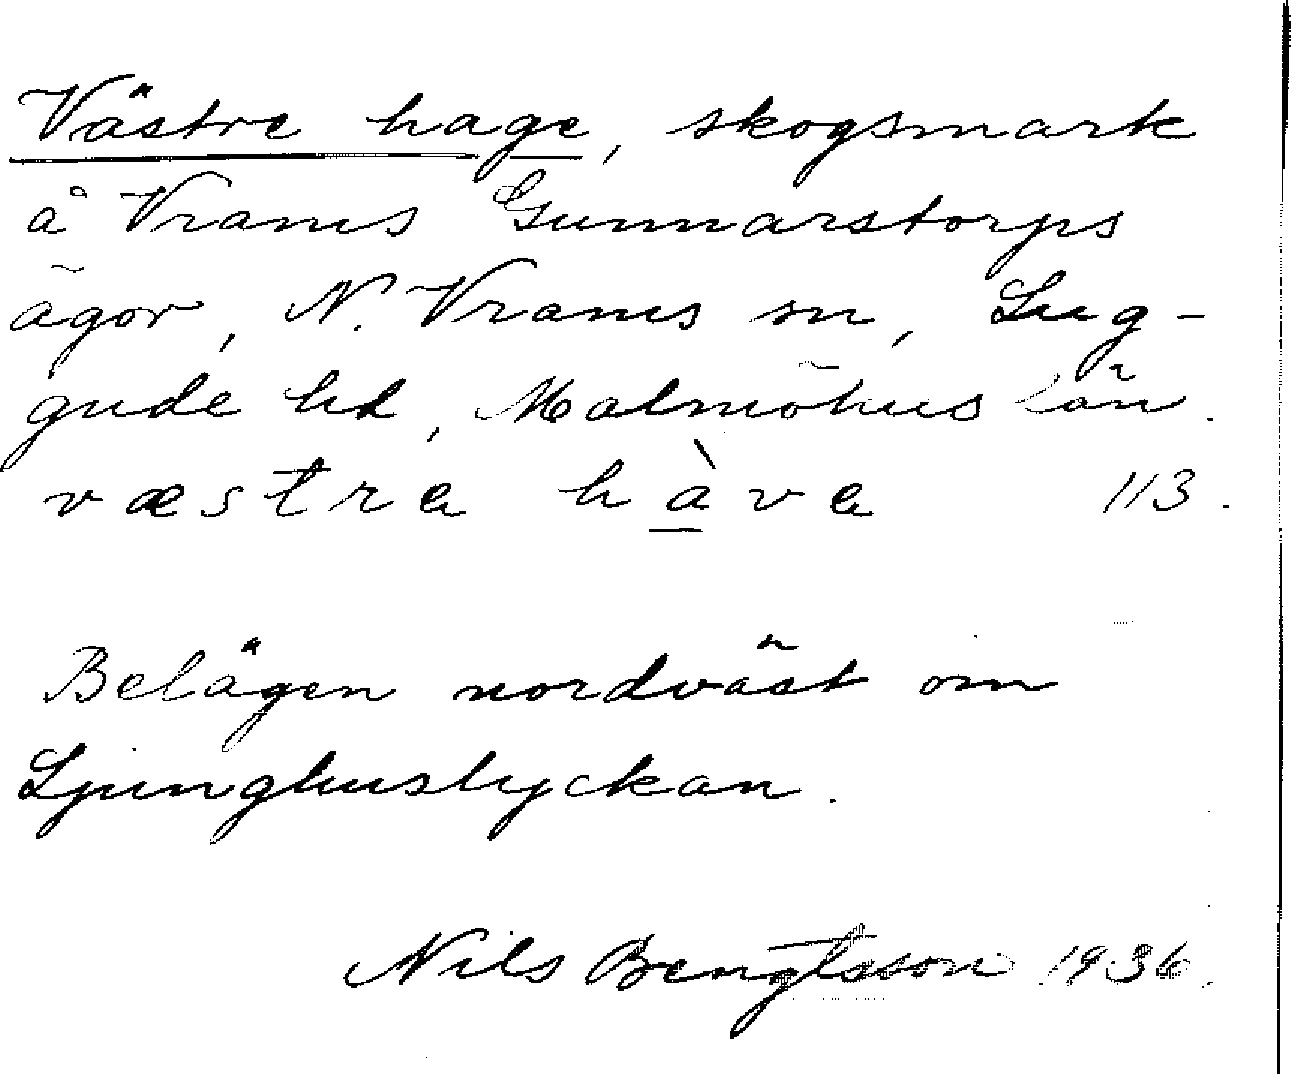 Västre hage, skogsmark
å Vrams Gunnarstorps
ägor, N. Vrams sn, Lug-
gude hd, Malmöhus län.
væstra hàva 113.
Belägen nordväst om
Ljunghuslyckan.
Nils Bengtsson 1936.